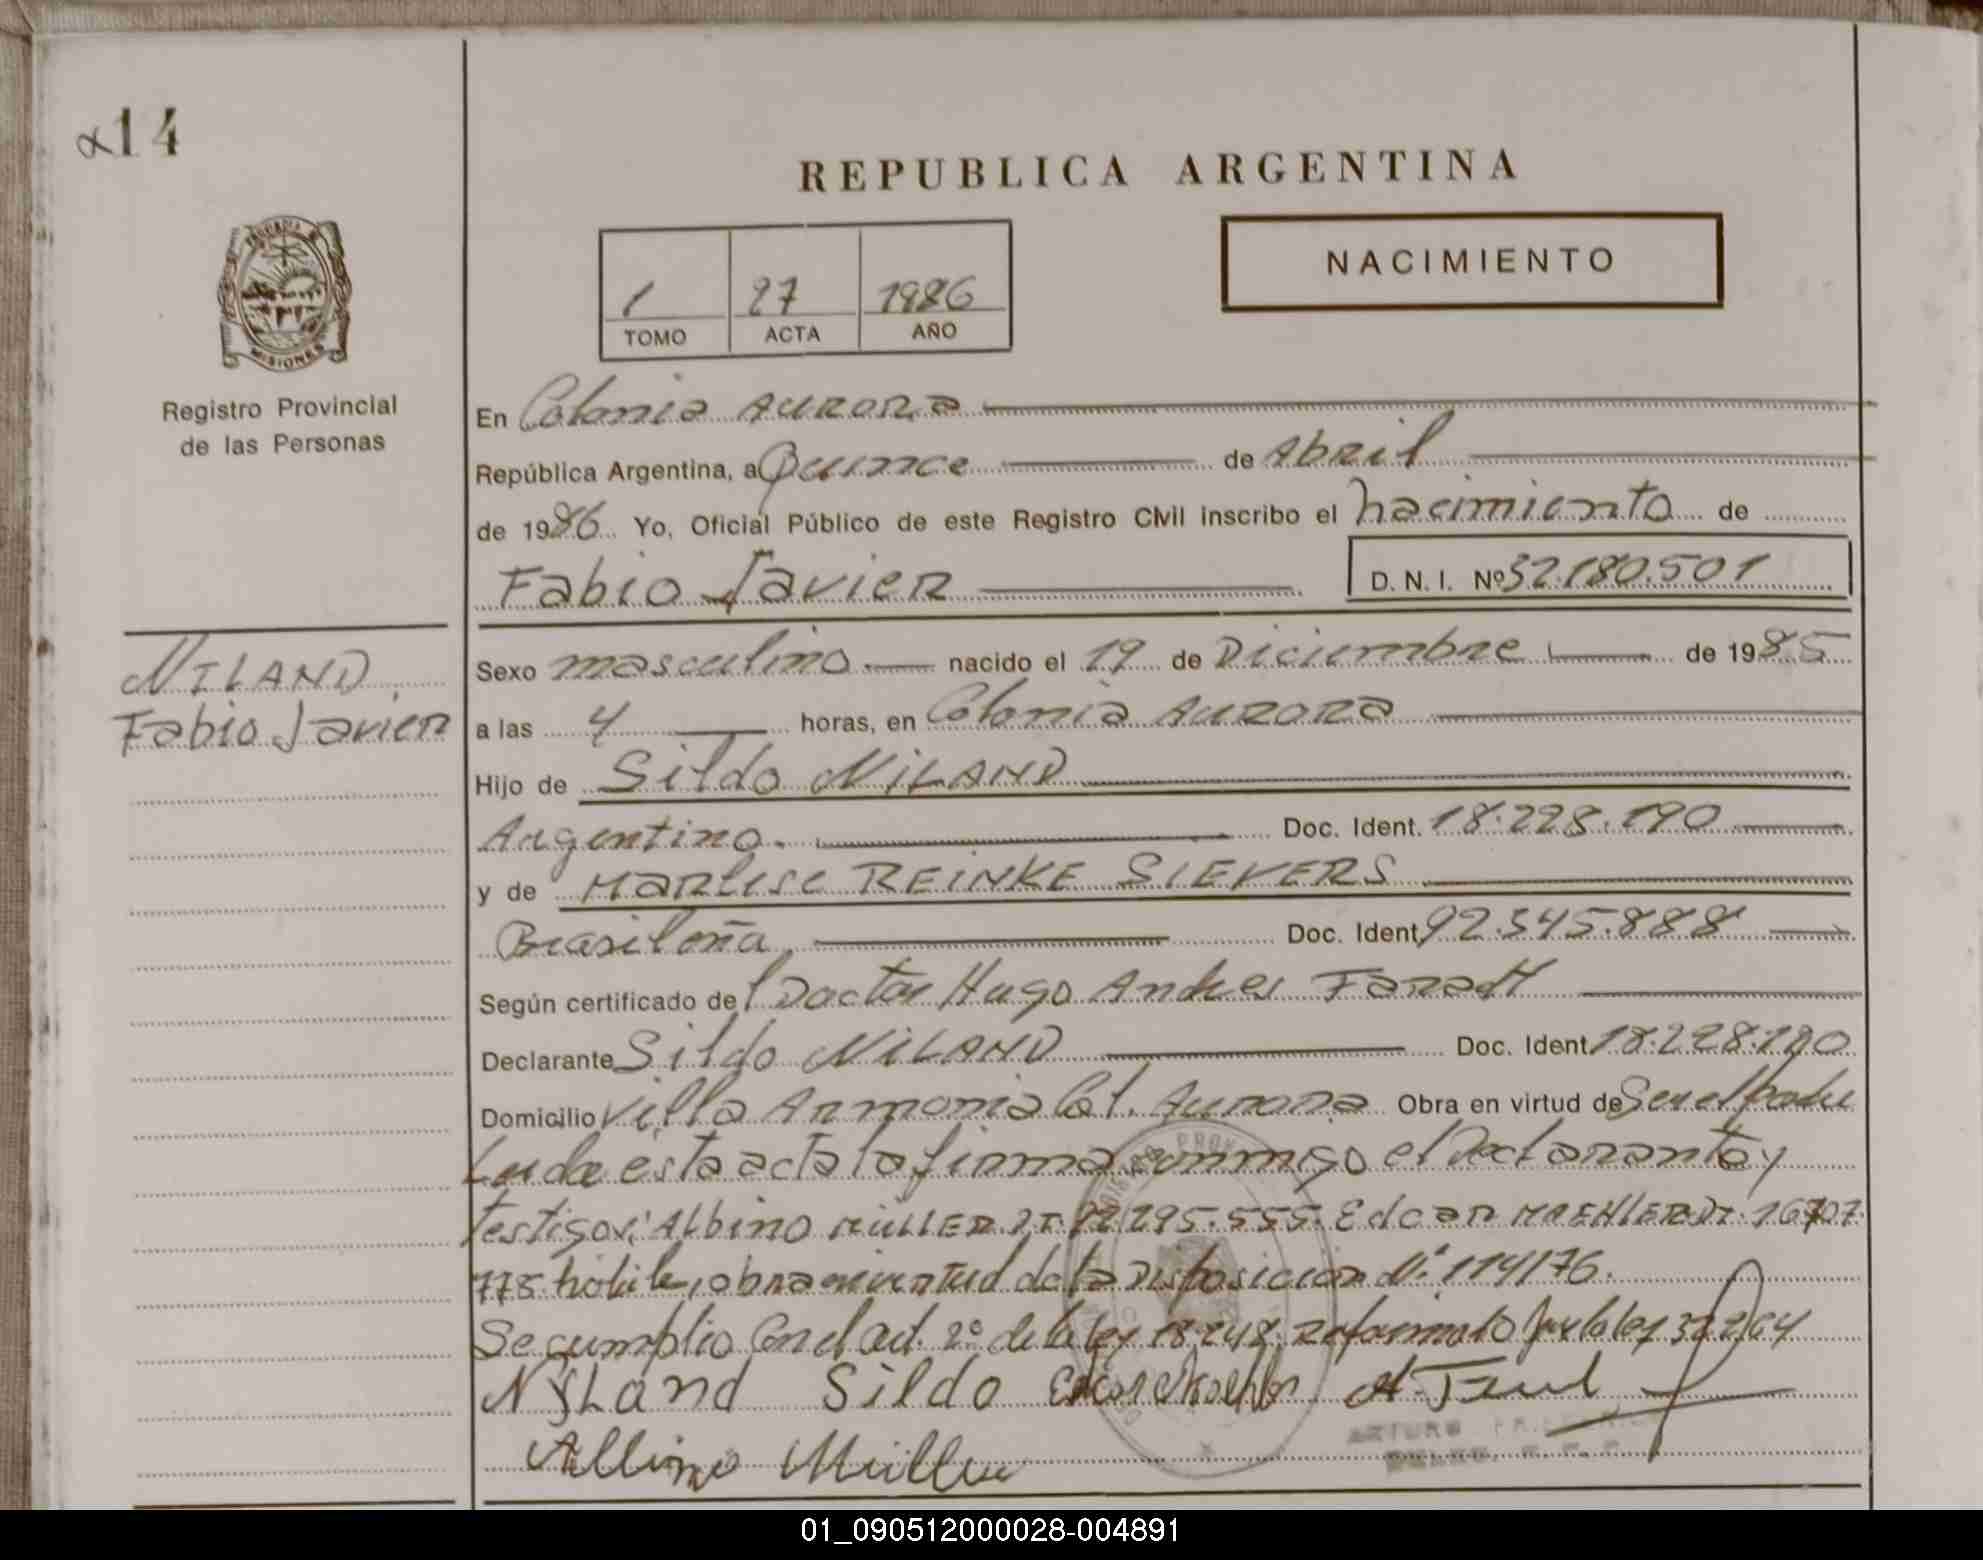 14
REPUBLICA ARGENTINA
NACIMIENTO
1 27 1986
TOMO ACTA AÑO
MISIONES
Registro Provincial
de las Personas
En Colonia Aurora
República Argentina, a Quince de Abril
de 1986. Yo, Oficial Público de este Registro Civil inscribo el nacimiento de
Fabio Javier D. N. I. Nº 32.180.501
NILAND,
Fabio Javier
Sexo masculino nacido el 19 de Diciembre de 1985
a las 4 horas, en Colonia Aurora
Hijo de Sildo NiLAND
Argentino. Doc. Ident. 18.228.190
y de Marlise REINKE SIEVERS
Brasileña Doc. Ident. 92.345.888
Según certificado del Doctor Hugo Andres Farah
Declarante Sildo NiLAND Doc. Ident. 18.228.190
Domicilio Villa Armonia Col. Aurora Obra en virtud de Ser el Padre
Leida esta acta la firma conmigo el Declarante y
testigos: Albino MÜLLER 295.555. Edcar 16707
778 obra en virtud de la Disposicion Nº 114/76.
Se cumplio Con el art. 2º de la ley 18.248, reformado por la ley
NyLand Sildo
Albino Müller
ARTURO
01_090512000028-004891